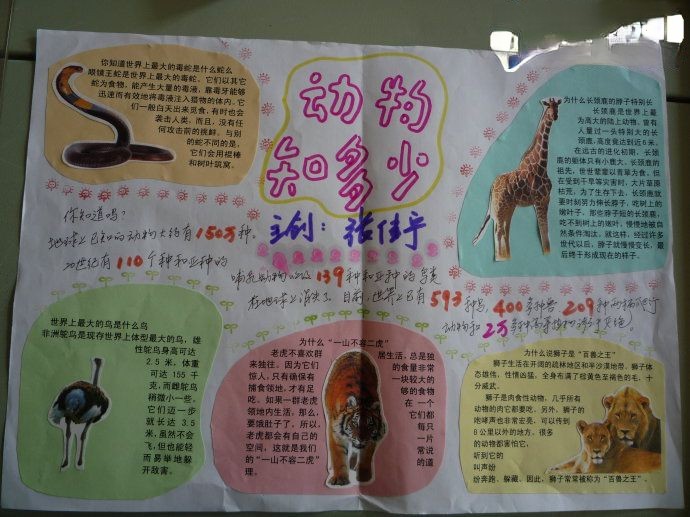 你知道世界上最大的毒蛇是什么蛇么
眼镜王蛇是世界上最大的毒蛇。它们以其它
蛇为食物，能产生大量的毒液，靠毒牙能够
迅速而有效地将毒液注入猎物的体内。它
们一般白天出来觅食，有时也会
袭击人类，而且，没有任
何攻击前的挑衅。与别
的蛇不同的是，
它们会用棍棒
和树叶筑窝。
动物
知多少
主创：张佳宇
为什么长颈鹿的脖子特别长
长颈鹿是世界上最
为高大的陆上动物。曾有
人量过一头特别大的长
颈鹿，高度竟达到近6米。
在远古的进化初期，长颈
鹿的躯体只有小鹿大。长颈鹿的
祖先，世世辈辈以青草为食，但
在受到干旱等灾害时，大片草原
枯荒，为了生存下去，长颈鹿就
要时刻努力伸长脖子，吃树上的
嫩叶子。那些脖子短的长颈鹿，
吃不到树上的嫩叶，慢慢地被自
然条件淘汰。就这样，经过许多
世代以后，脖子就慢慢变长，最
后终于形成现在的样子。
你知道吗？
地球上已知的动物大约有150万种。
20世纪有110个种和亚种的
哺乳动物以及139种和亚种的鸟类
在地球上消失了。目前，世界上已有593种鸟、400多种兽、209种两栖爬行
动物和2万多种高等植物濒于灭绝。
世界上最大的鸟是什么鸟
非洲鸵鸟是现存世界上体型最大的鸟，雄
性鸵鸟身高可达
2.5 米，体重
可达 155 千
克，而雌鸵鸟
稍微小一些，
它们迈一步
就长达 3.5
米，虽然不会
飞，但也能轻
而易举地躲
开敌害。
为什么“一山不容二虎”
老虎不喜欢群居生活，总是独
来独往。因为它们的食量非常
惊人，只有确保有一块较大的
捕食领地，才有足够的食物
吃。如果一群老虎在一个
领地内生活，那么，它们都
要饿肚子了，所以，每只
老虎都会有自己的一片
空间，这就是我们常说
的“一山不容二虎”的道
理。
为什么说狮子是“百兽之王”
狮子生活在开阔的疏林地区和半沙漠地带。狮子体
态雄伟，性情凶猛，全身布满了棕黄色至褐色的毛，十
分威武。
狮子是肉食性动物，几乎所有
动物的肉它都要吃。另外，狮子的
咆哮声也非常宏亮，可以传到
8公里以外的地方，很多
的动物都害怕它，
听到它的
叫声纷
纷奔跑、躲藏。因此，狮子常常被称为“百兽之王”。